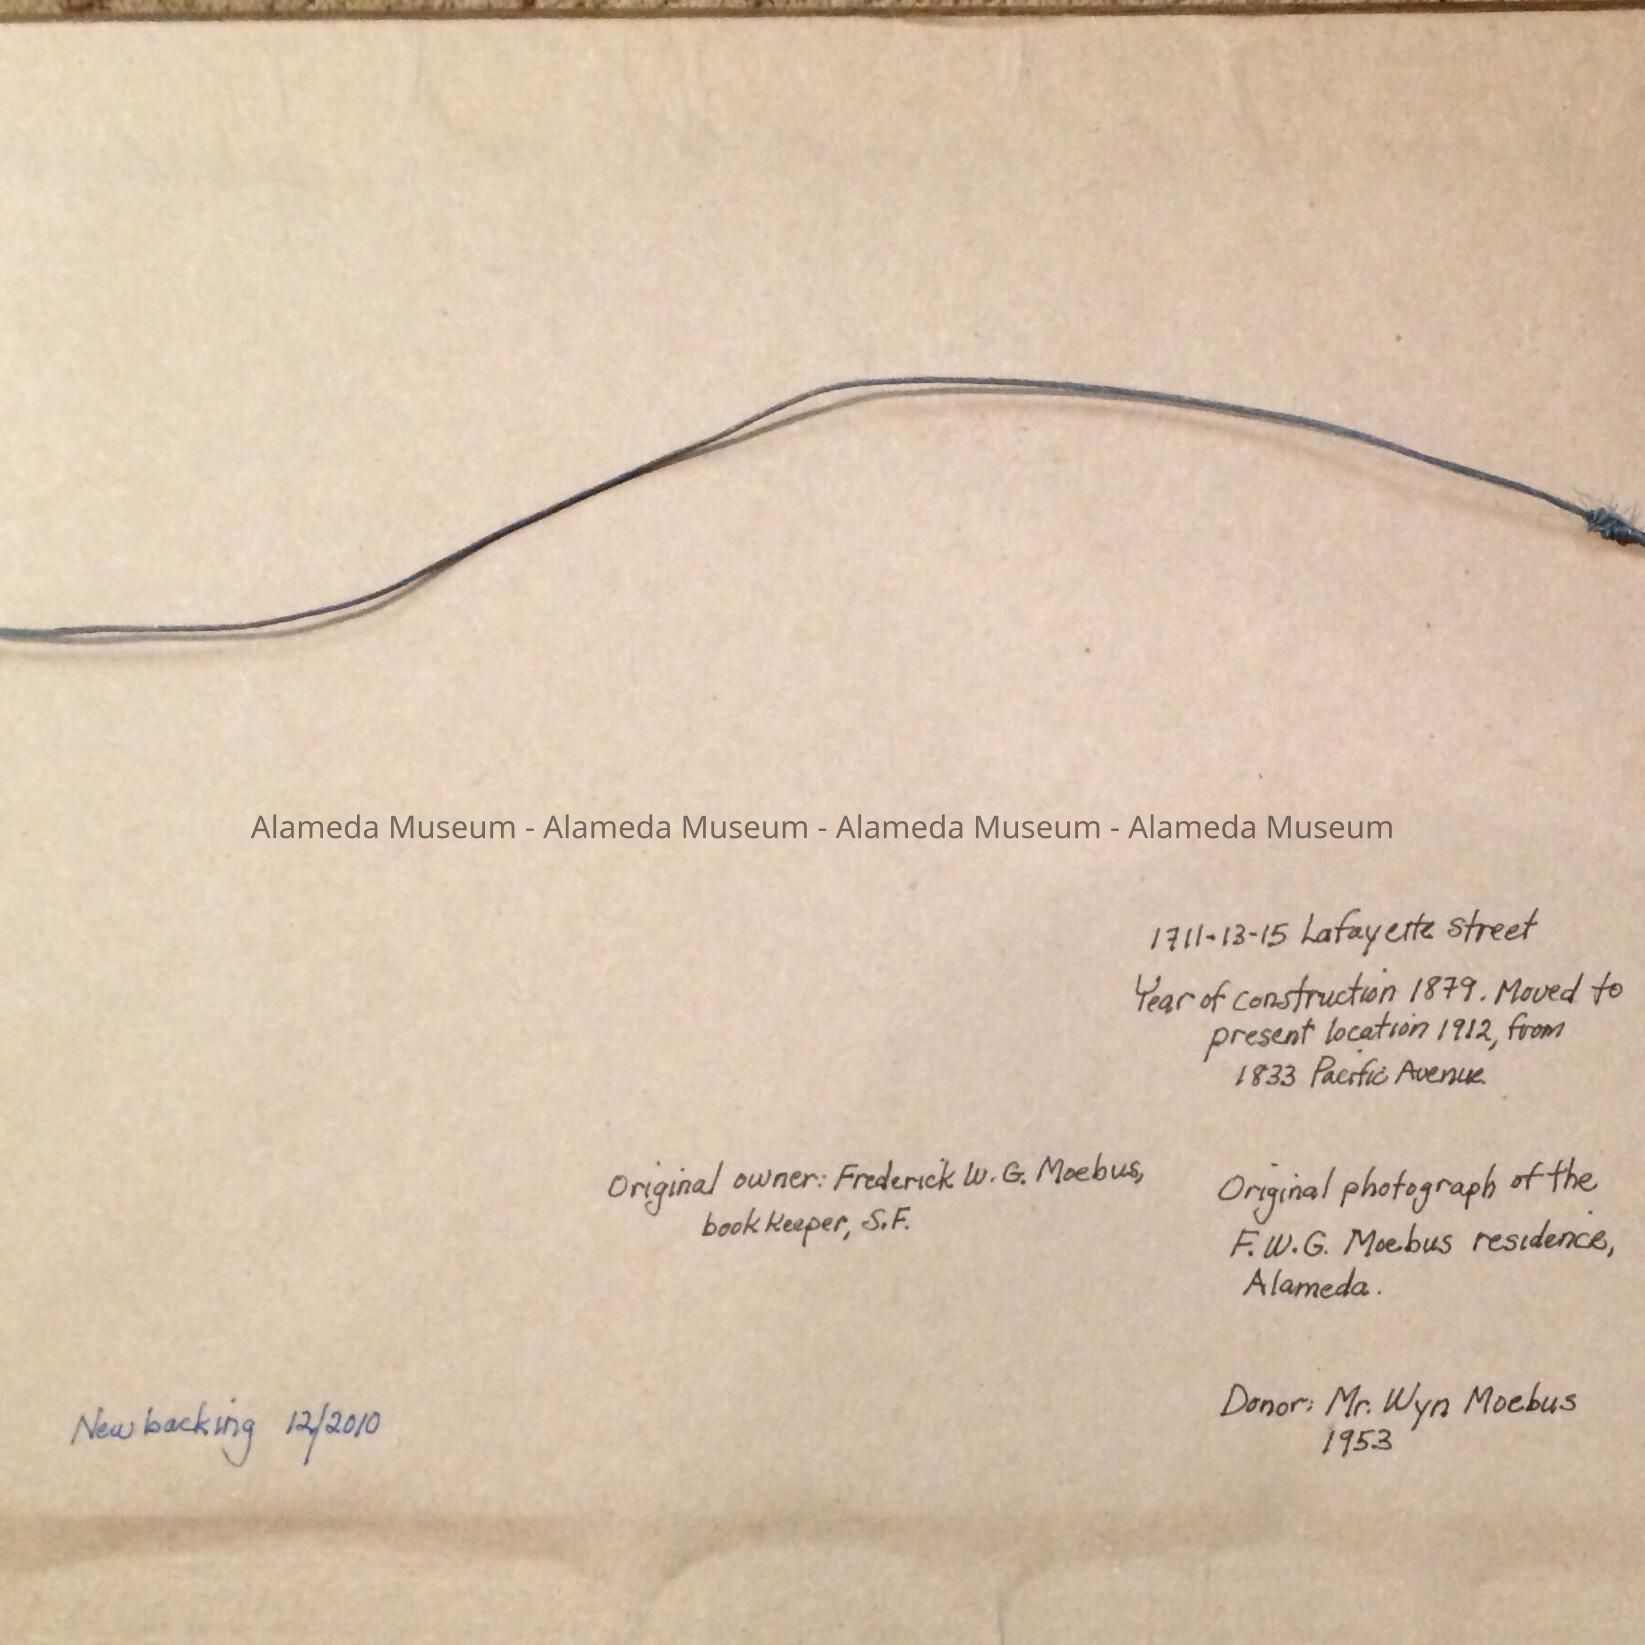 Alameda Museum - Alameda Museum - Alameda Museum - Alameda Museum
1711-13-15 Lafayette Street
Year of construction 1879. Moved to
present location 1912, from
1833 Pacific Avenue
Original owner: Frederick W. G. Moebus,
bookkeeper, S.F.
Original photograph of the
F. W. G. Moebus residence,
Alameda.
Donor: Mr. Wyn Moebus
1953
New backing 12/2010